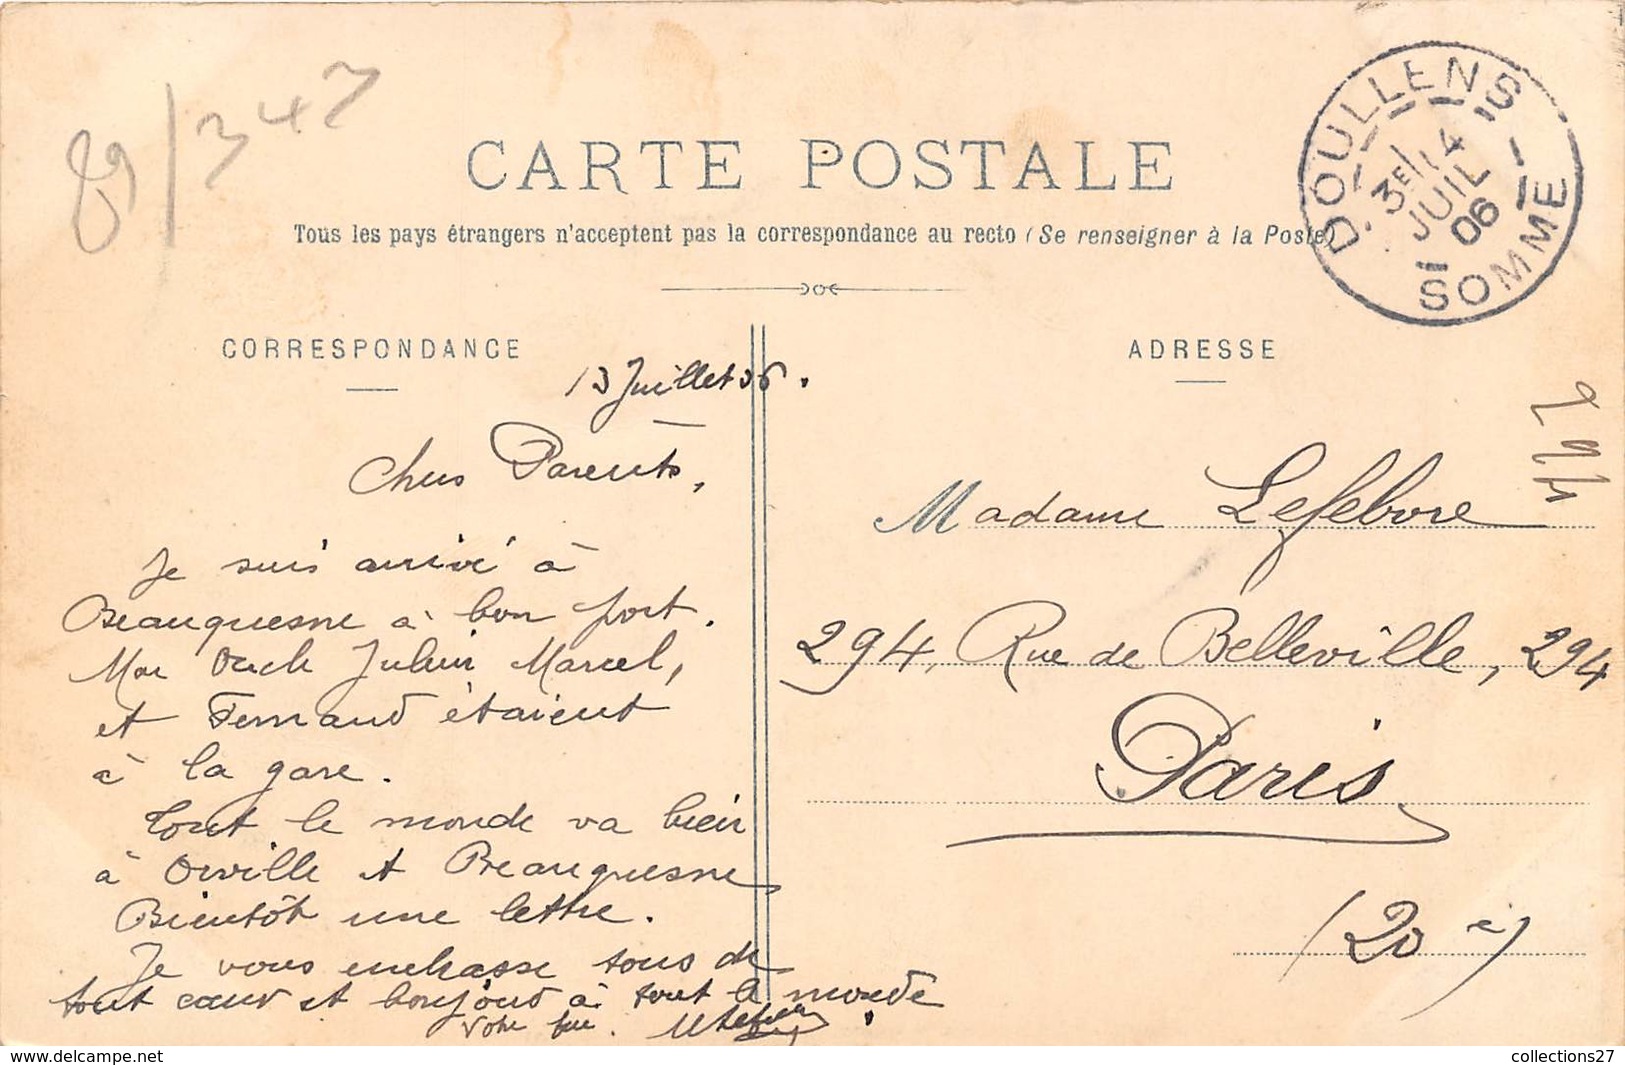 89/347
CARTE POSTALE
Tous les pays étrangers n'acceptent pas la correspondance au recto (Se renseigner à la Poste)
DOULLENS
3E/14
JUIL
06
SOMME
CORRESPONDANCE
ADRESSE
13 Juillet 06.
Chers Parents,
Je suis arrivé à
Beauquesne à bon port.
Mon Oncle Julien Marcel,
et Fernand étaient
à la gare.
Tout le monde va bien
à Orville et Beauquesne
Bientôt une lettre.
Je vous embrasse tous de
tout cœur et bonjour à tout le monde.
Votre
Madame Lefebvre
294, Rue de Belleville, 294
Paris
(20e)
collections27